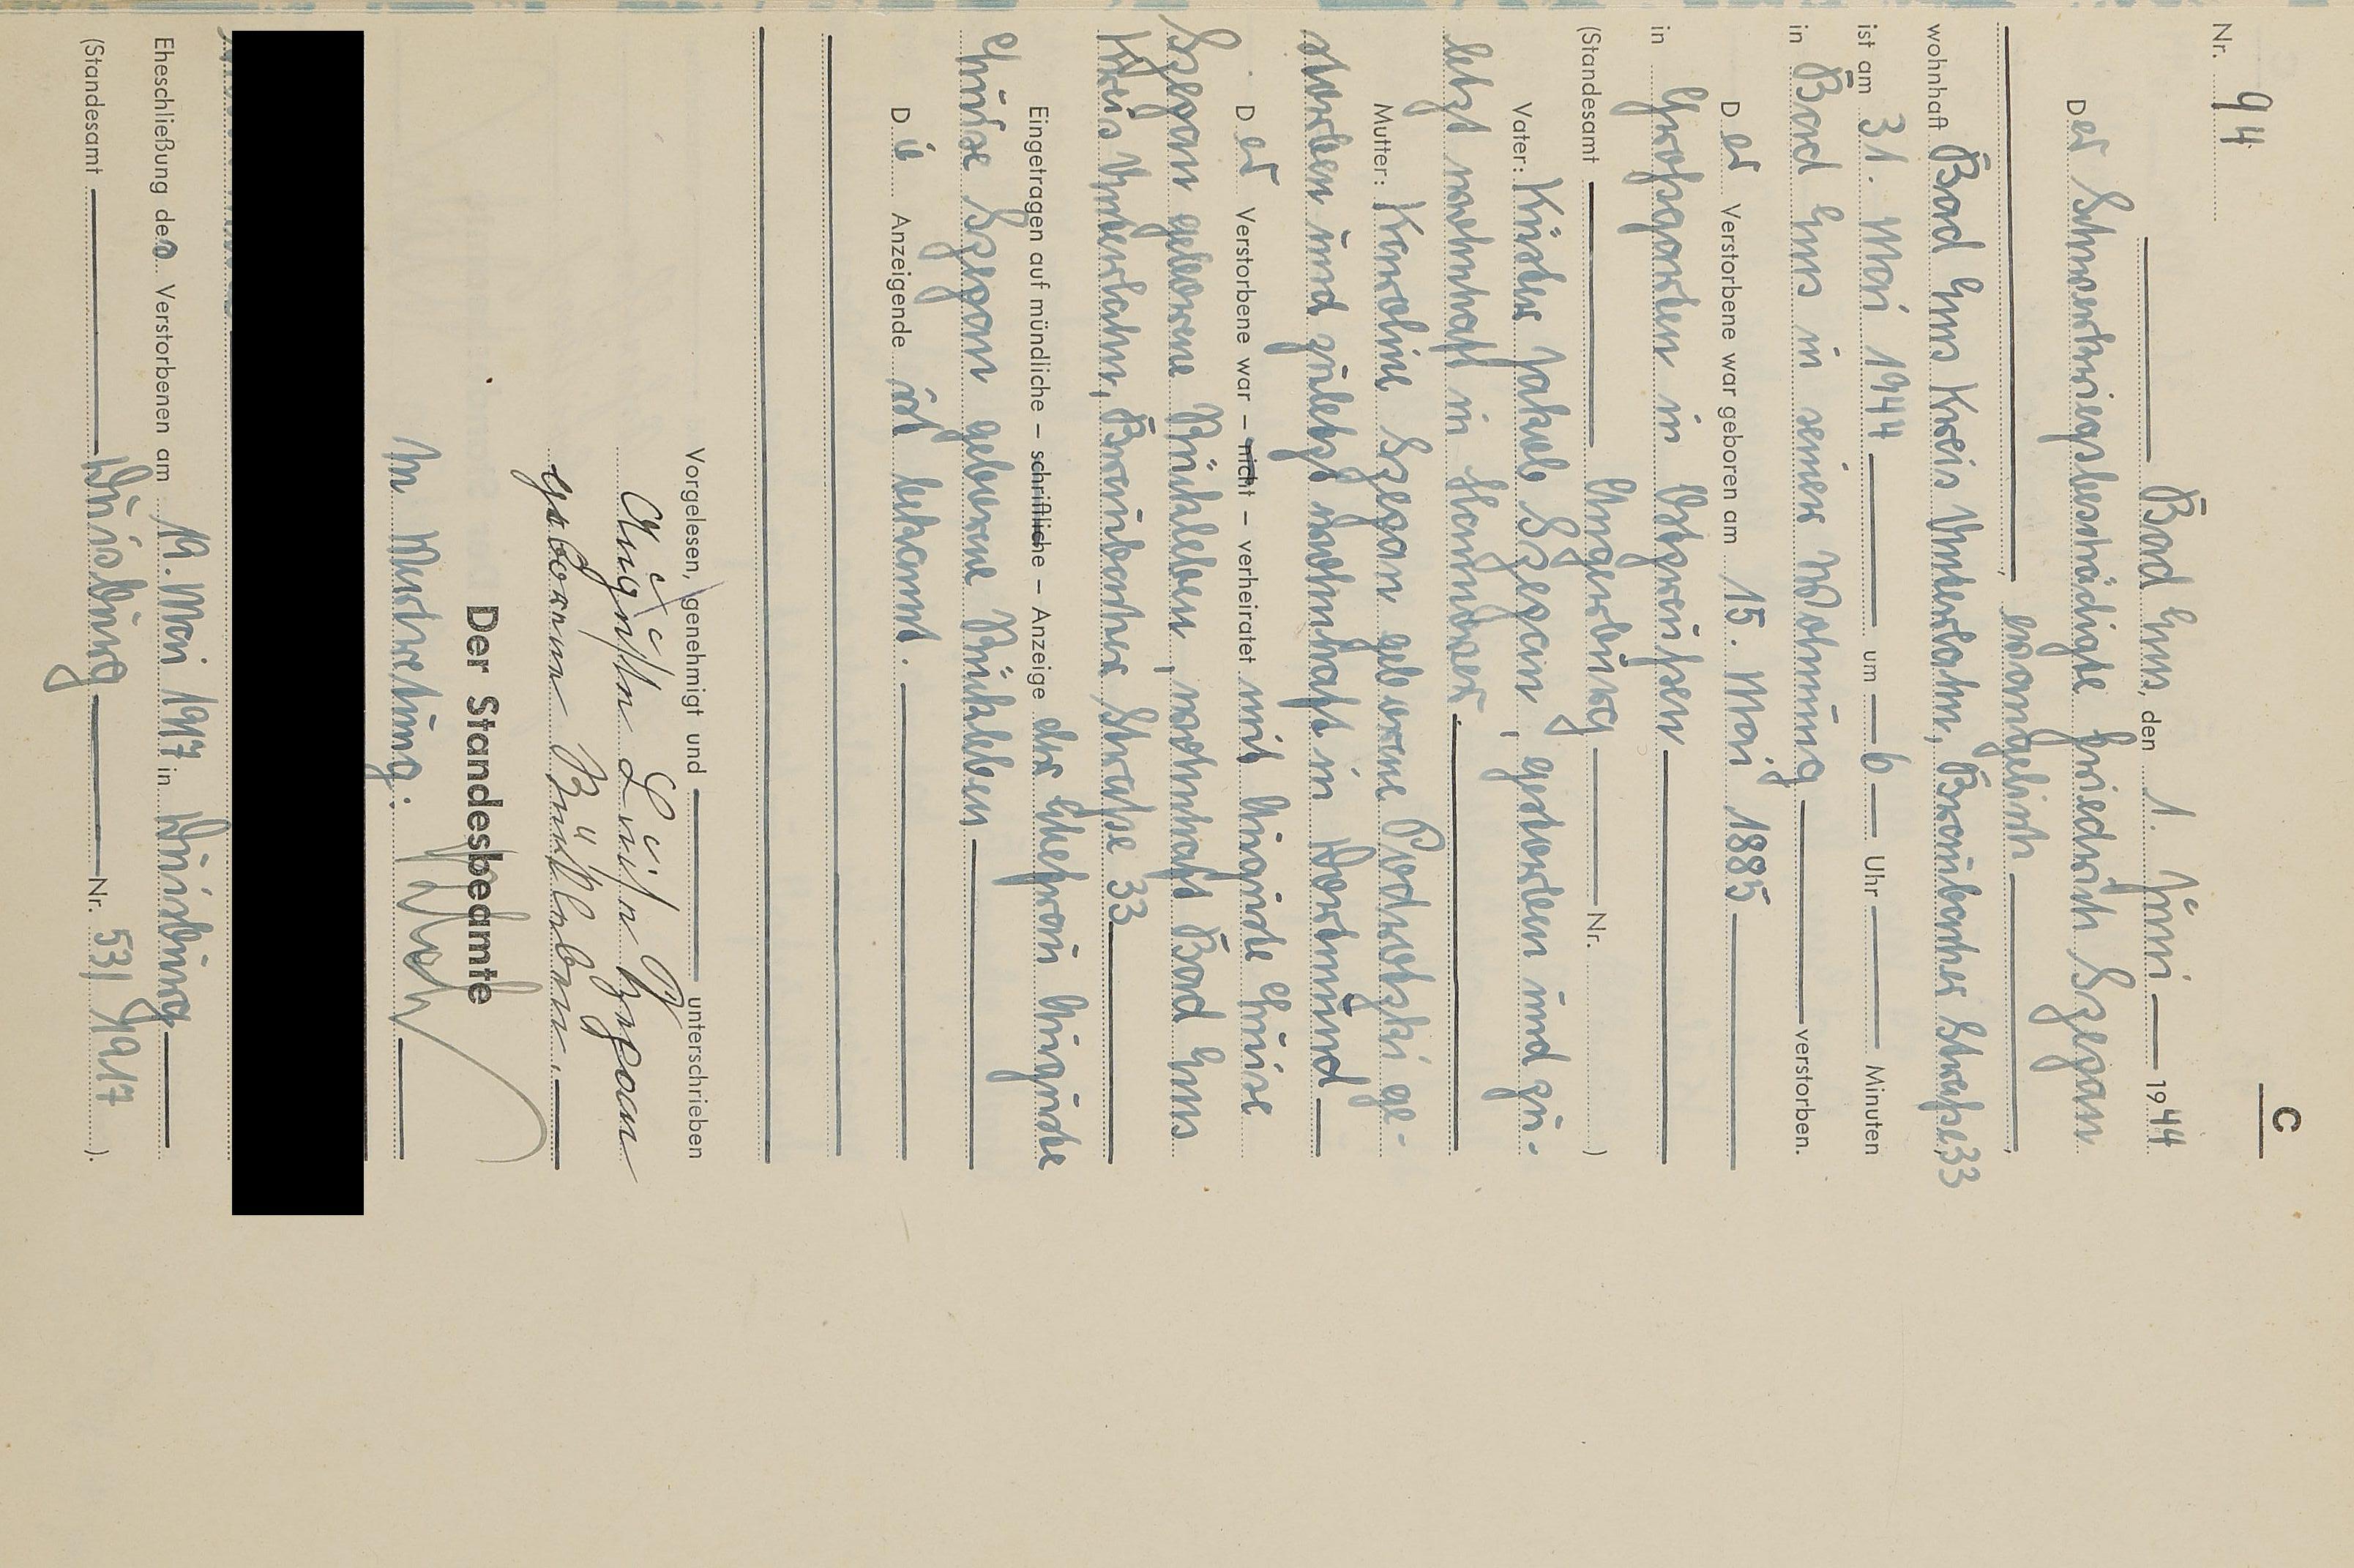 C
Nr. 94
Bad Ems, den 1. Juni 1944
Der Schwerkriegsbeschädigte Friedrich Szepan
, evangelisch ,
wohnhaft Bad Ems Kreis Unterlahn, Braubacher Straße 33
ist am 31. Mai 1944 um 6 Uhr Minuten
in Bad Ems in seiner Wohnung verstorben.
Der Verstorbene war geboren am 15. Mai 1885
in Großgarten in Ostpreußen
(Standesamt Angerburg Nr. )
Vater: Jakob Szepan, gestorben und zu-
letzt wohnhaft in
Mutter: Karoline Szepan geborene ge-
storben und zuletzt wohnhaft in Dortmund
Der Verstorbene war – nicht – verheiratet mit Auguste Luise
Szepan geborene Bücksleben, wohnhaft Bad Ems
Kreis Unterlahn, Braubacher Straße 33
Eingetragen auf mündliche – schriftliche – Anzeige der Ehefrau Auguste
Luise Szepan geborene
Die Anzeigende ist bekannt.
Vorgelesen, genehmigt und unterschrieben
Auguste Luise Szepan
geborene
Der Standesbeamte
In Vertretung:
Eheschließung des Verstorbenen am 19. Mai 1917 in Duisburg
(Standesamt Duisburg Nr. 531/1917 ).